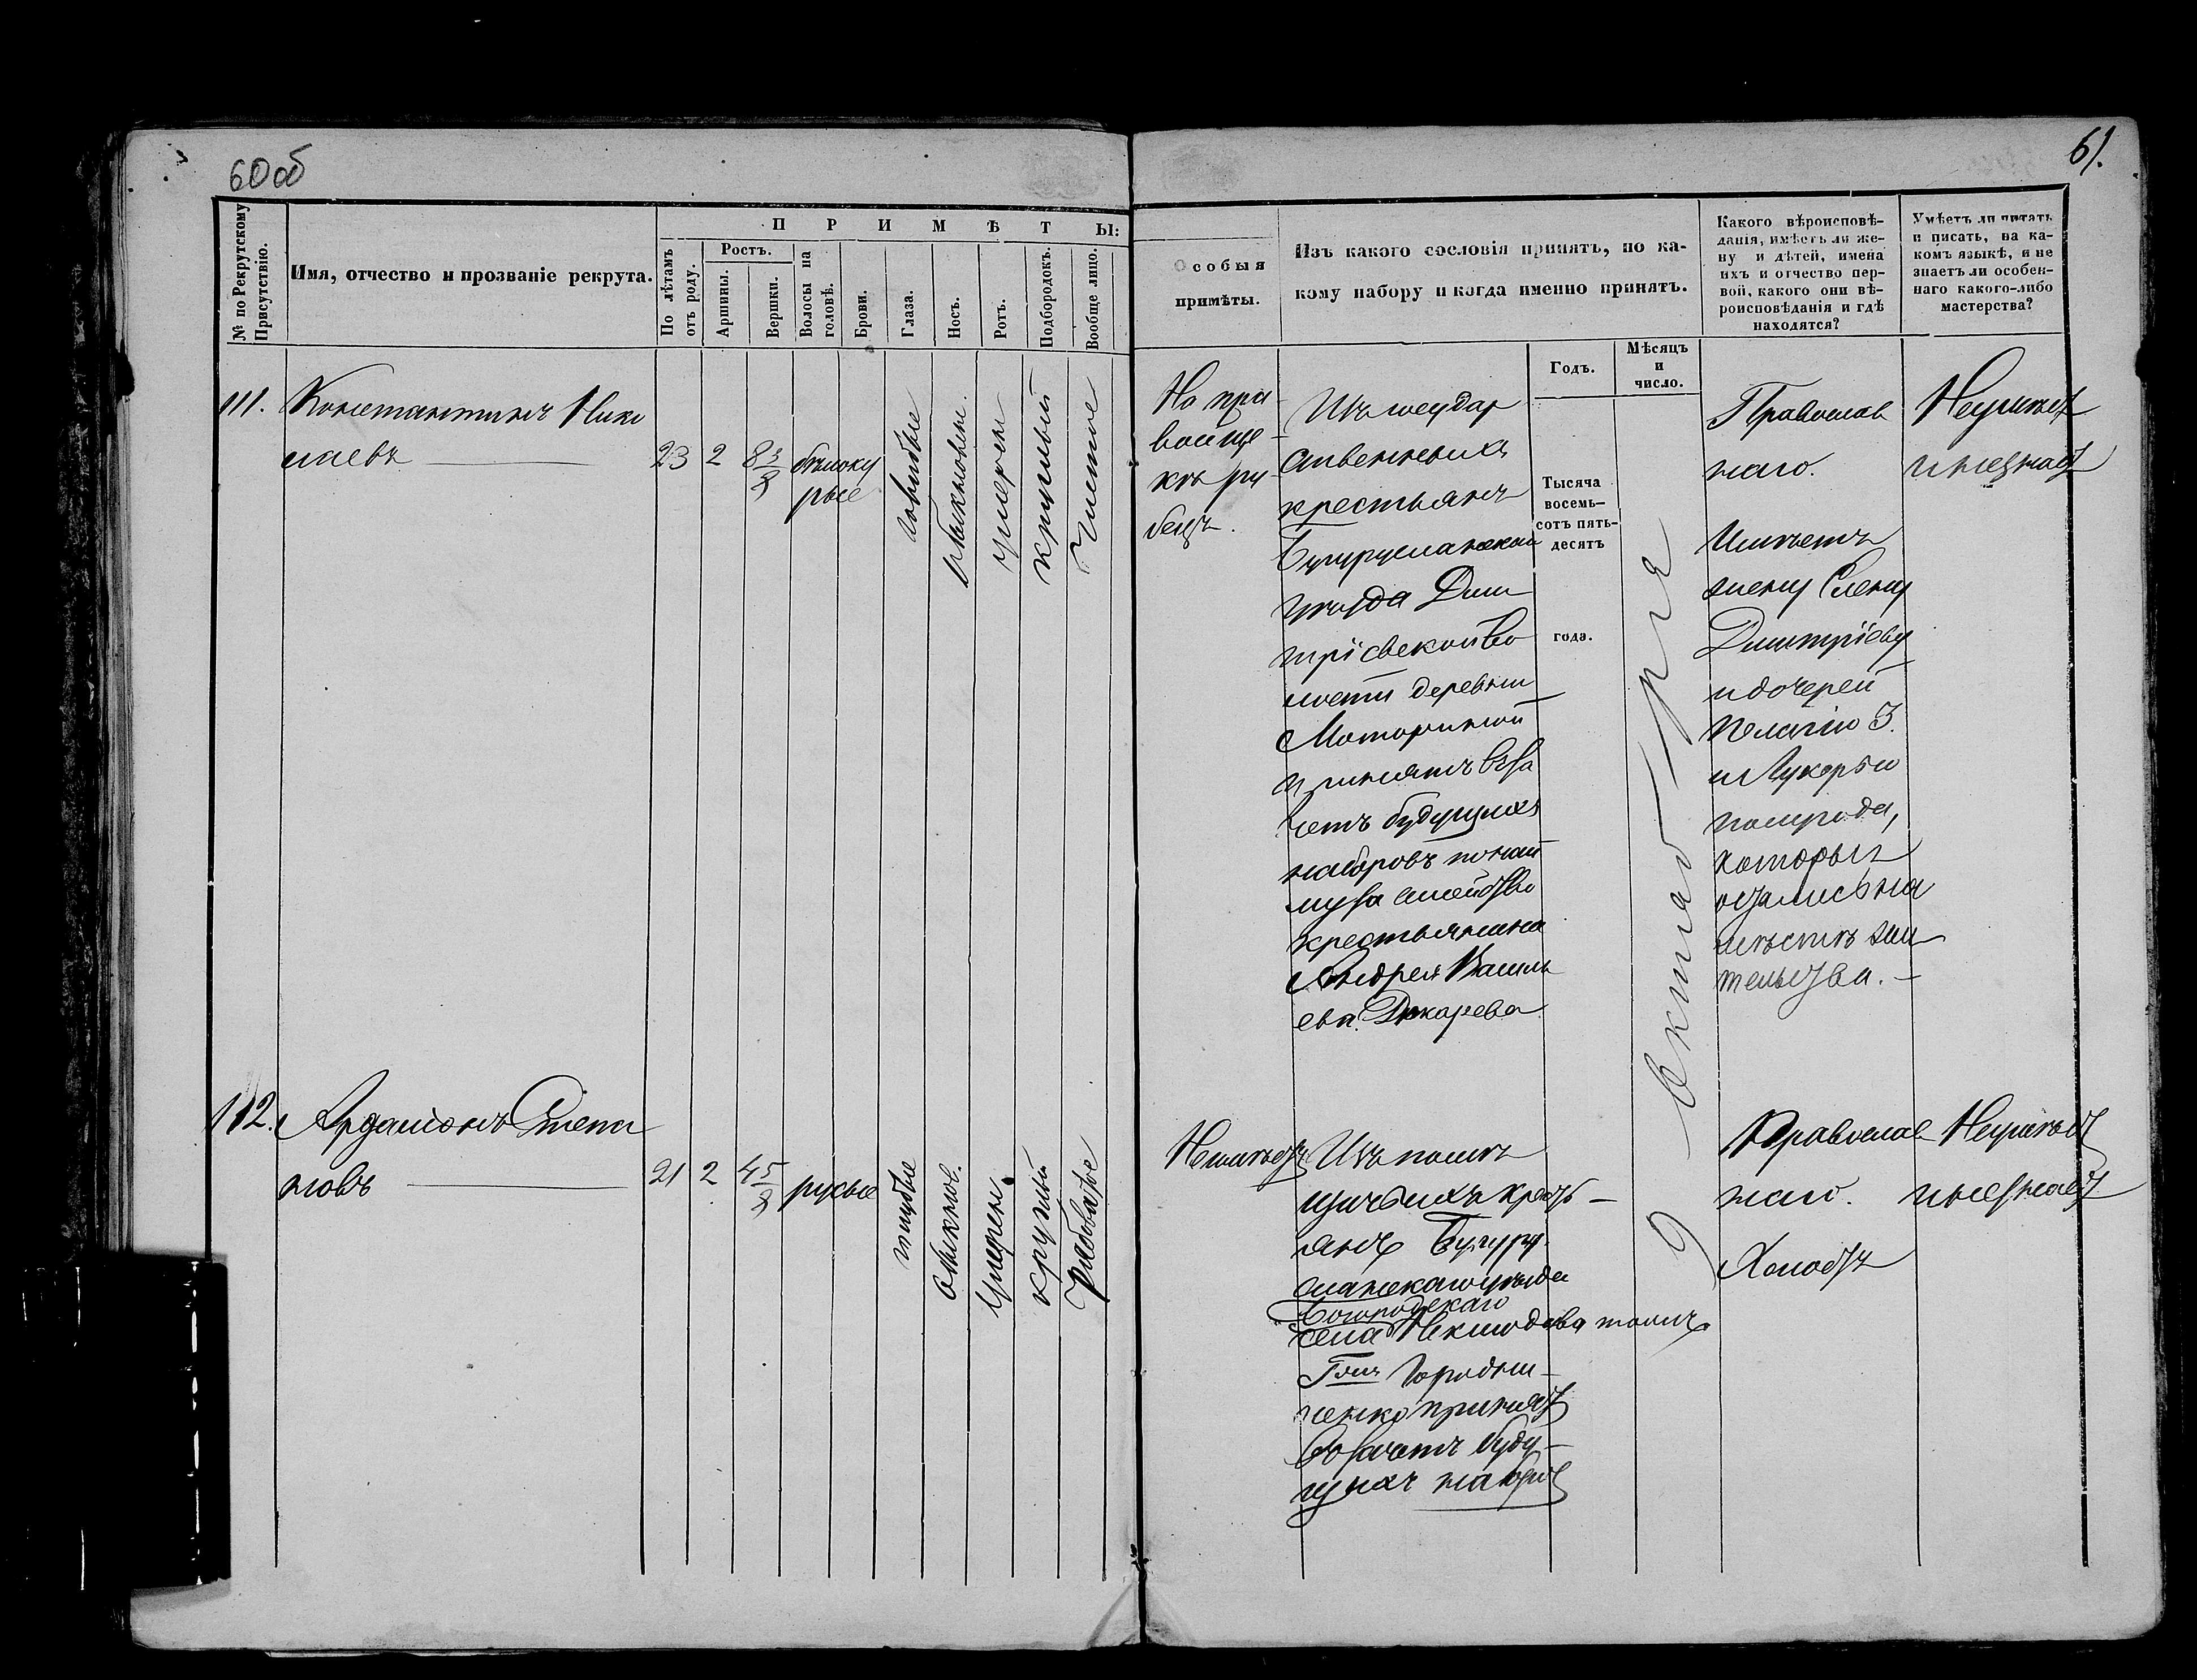 60 об
61.
№ по Рекрутскому Присутствію.
Имя, отчество и прозваніе рекрута.
ПРИМѢТЫ:
По лѣтамъ отъ роду.
Ростъ.
Аршины.
Вершки.
Волосы на головѣ.
Брови.
Глаза.
Носъ.
Ротъ.
Подбородокъ.
Вообще лицо.
Особыя
примѣты.
Изъ какого сословія принятъ, по ка-
кому набору и когда именно принятъ.
Годъ.
Мѣсяцъ
и
число.
Какого вѣроисповѣ-
данія, имѣетъ ли же-
ну и дѣтей, имена
ихъ и отчество пер-
вой, какого они вѣ-
роисповѣданія и гдѣ
находятся?
Умѣетъ ли читать
и писать, на ка-
комъ языкѣ, и не
знаетъ ли особен-
наго какого-либо
мастерства?
111. Константинъ Нико
лаевъ
23 2 8 3/8
бѣлоку
рые
голубые
обыкновен.
умерен
круглый
Чистое
На пра
вой ще
кѣ ру
бецъ.
Изъ государ
ственныхъ
крестьянъ
Бугурусланскаго
уѣзда Дми
тріевской во
лости деревни
Моториной
принятъ въ за
четъ будущихъ
наборовъ по най
му за семейство
крестьянина
Андрея Василь
ева
Тысяча
восемь-
сотъ пять-
десятъ
года.
9 октября
Православ
наго.
Имѣетъ
жену Елену
Дмитріеву
и дочерей
Пелагію 3.
и Лукерью
полугода,
которыя
остались на
мѣстѣ жи
тельства.
Неумѣетъ
и незнаетъ
112. Ардаліонъ Степа
новъ
21 2 4 5/8
русые
голубые
обыкнов.
умерен.
круглый
Рябоватое
Неимѣетъ
Изъ помѣ
щичьихъ кресть
янъ Бугуру
сланскаго уѣзда
Богородскаго
села Неклюдова тожъ
Гжи Городни
ченко принятъ
въ зачетъ буду
щихъ наборовъ
Православ
наго.
Холостъ
Неумѣетъ
и незнаетъ